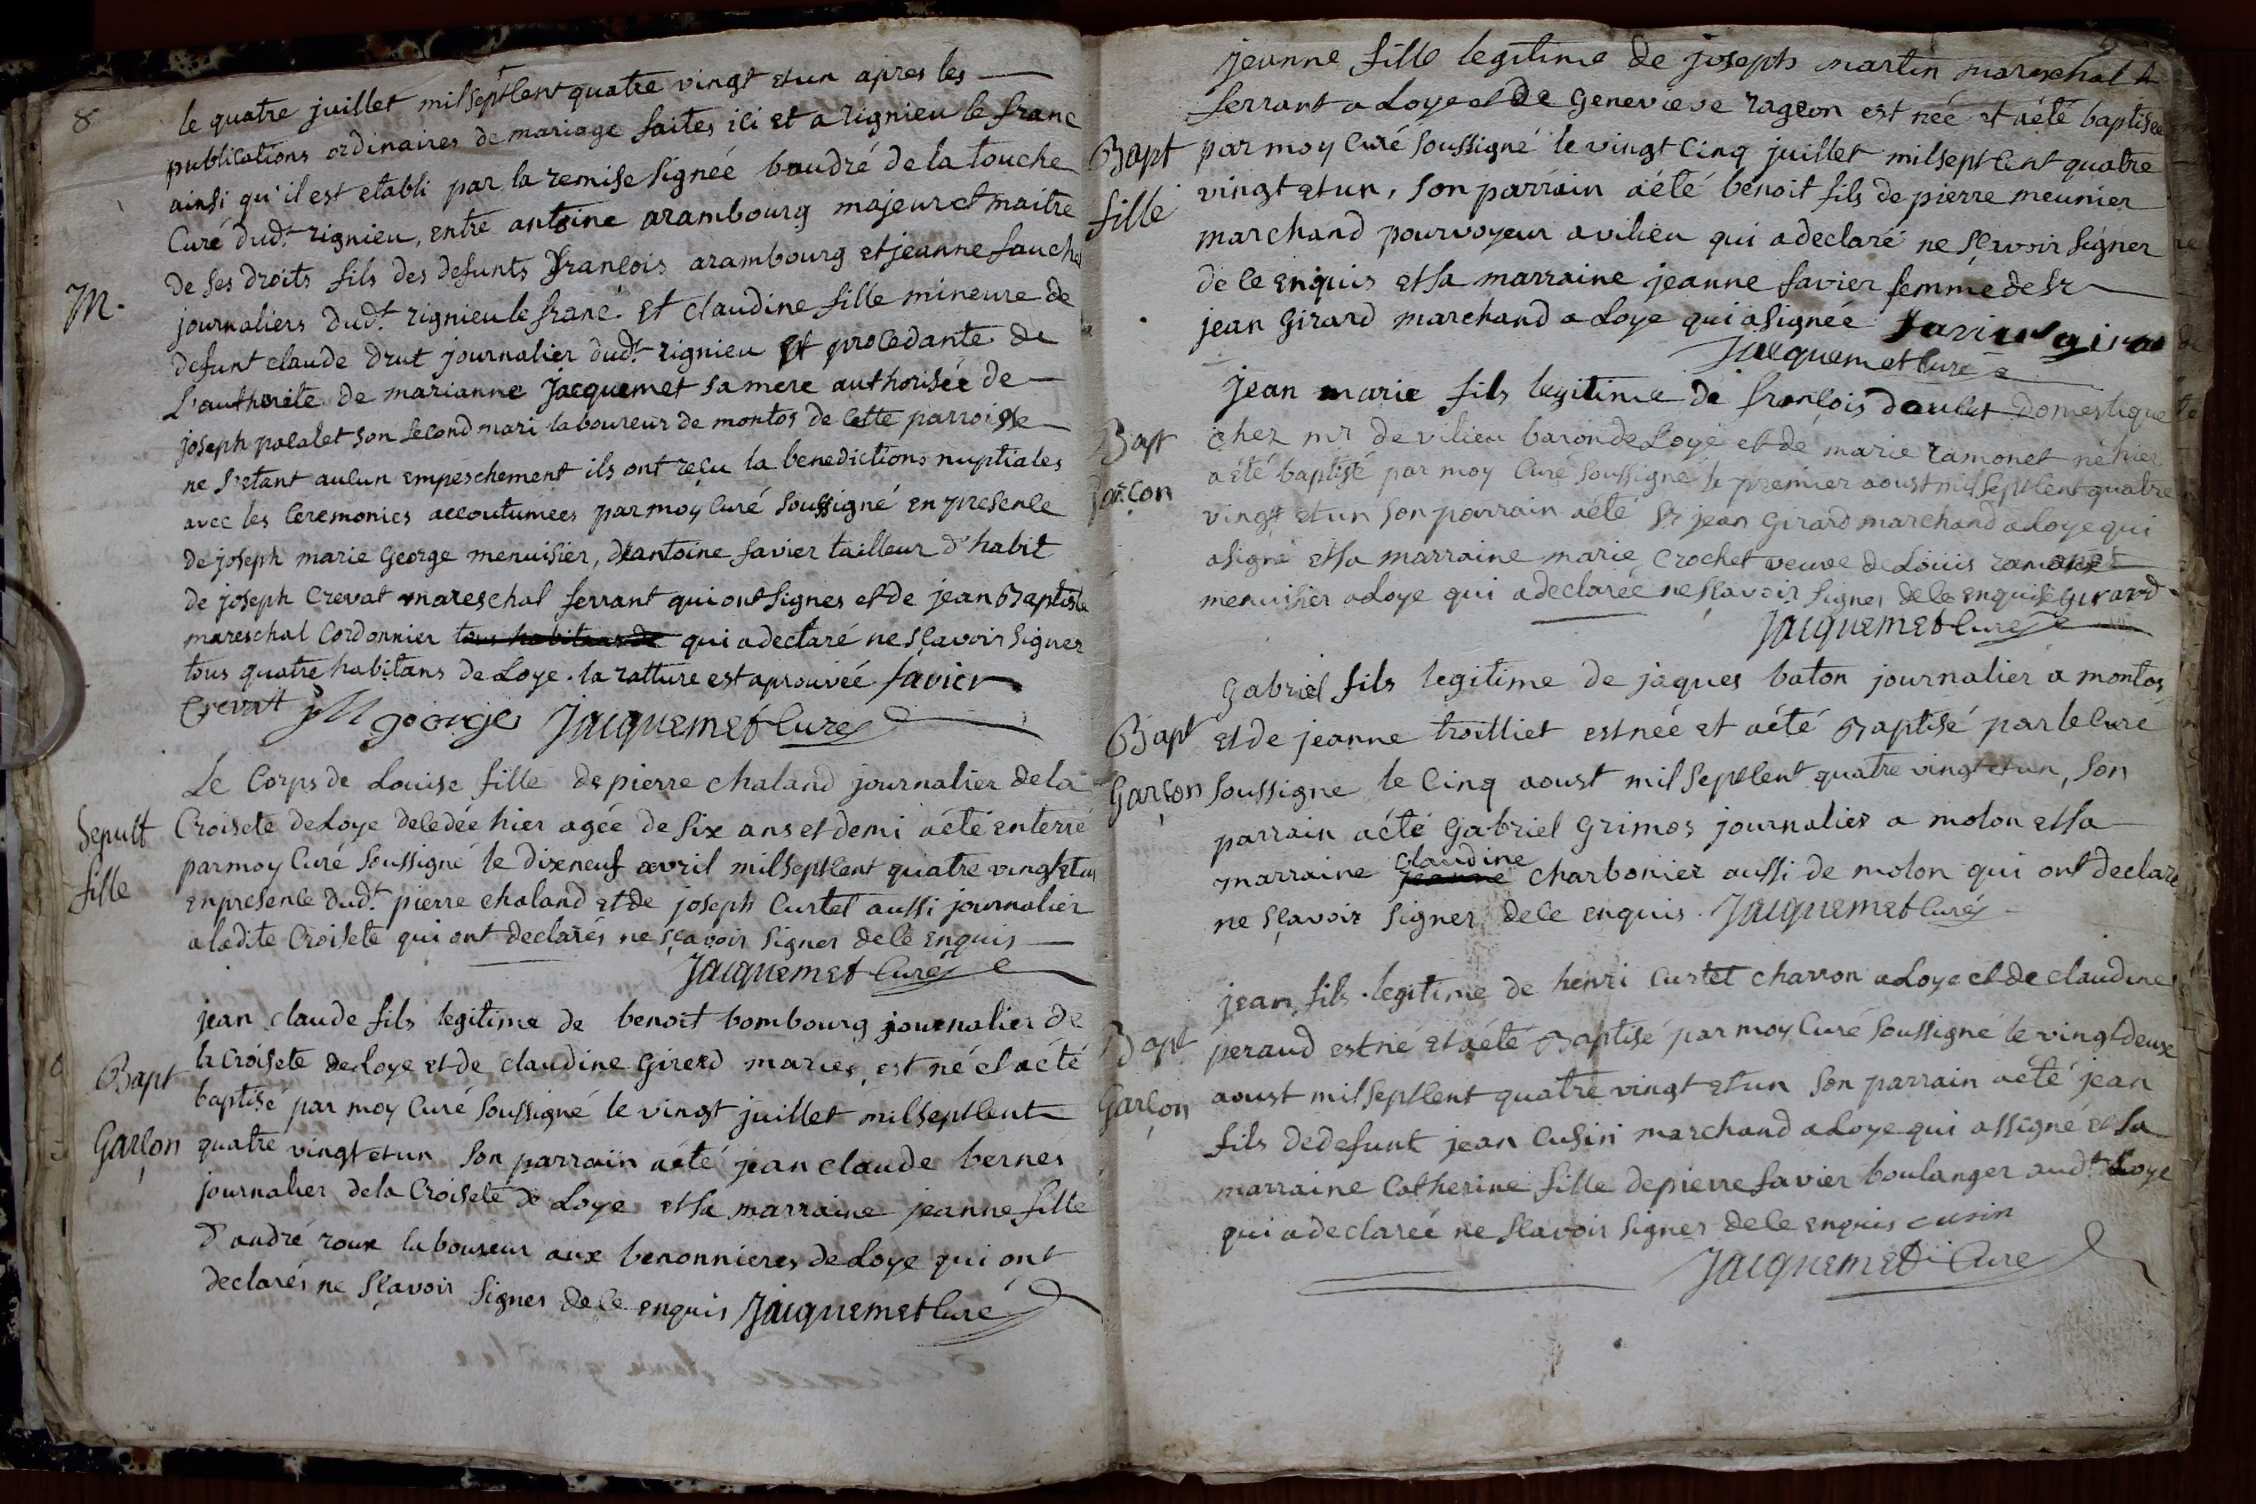 8
le quatre juillet mil sept cent quatre vingt et un apres les
publications ordinaires de mariage faites ici et a rignieu le franc
ainsi qu'il est etabli par la remise signée baudré de la touche
Curé dud.t rignieu, entre antoine arambourg majeur et maitre
de ses droits fils des defunts françois arambourg et jeanne fauche
M.
journaliers dud.t rignieu le franc. et claudine fille mineure de
defunt claude drut journalier dud.t rignieu et procedante de
l'authorité de marianne jacquemet sa mere authorisée de
joseph pacalet son second mari laboureur de montos de cette parroisse
ne s'etant aucun empeschement ils ont reçu la benedictions nuptiales
avec les ceremonies accoutumées par moy Curé soussigné en presence
de joseph marie george menuisier, d'antoine favier tailleur d'habit
de joseph Crevat mareschal ferrant qui ont signes et de jean Baptiste
mareschal Cordonnier tous habitans de qui a declaré ne sçavoir signer
tous quatre habitans de Loye. la ratture est aprouvée favier
Crevat JM george Jacquemet Curé
Le Corps de Louise fille de pierre chaland journalier de la
Sepult
fille
Croisete de Loye decedée hier agée de six ans et demi a été enterré
par moy Curé soussigné le dixneuf avril mil sept cent quatre vingt et un
en presence dud.t pierre chaland et de joseph Curtet aussi journalier
a ladite Croisete qui ont declarés ne sçavoir signer de ce enquis
Jacquemet Curé
jean claude fils legitime de benoit bombourg journalier de
Bapt
Garçon
la Croisete de Loye et de claudine Girerd mariés, est né et a été
baptisé par moy Curé soussigné le vingt juillet mil sept cent
quatre vingt et un son parrain a été jean claude bernes
journalier de la Croisete de Loye et sa marraine jeanne fille
d'andré roux laboureur aux benonnieres de Loye qui ont
declarés ne sçavoir signer de ce enquis Jacquemet Curé
jeanne fille legitime de joseph martin mareschal
ferrant a Loye et de Genevieve rageon est née et a été baptisée
Bapt
fille
par moy Curé soussigné le vingt cinq juillet mil sept cent quatre
vingt et un, son parrain a été benoit fils de pierre meunier
marchand pourvoyeur a vilieu qui a declaré ne sçavoir signer
de ce enquis et sa marraine jeanne favier femme de sr
jean Girard marchand a Loye qui a signée favier girard
Jacquemet Curé
jean marie fils legitime de françois doulet domestique
Bapt
garçon
chez mr de vilieu baron de Loye et de marie ramonet né hier
a été baptisé par moy Curé soussigné le premier aoust mil sept cent quatre
vingt et un son parrain a été sr jean Girard marchand a Loye qui
a signé et sa marraine marie Crochet veuve de Louis ramonet
menuisier a Loye qui a declarée ne sçavoir signer de ce enquise Girard
Jacquemet Curé
Gabriel fils legitime de jaques baton journalier a montos
Bapt
Garçon
et de jeanne troilliet est née et a été Baptisé par le Curé
soussigne le cinq aoust mil sept cent quatre vingt et un, son
parrain a été Gabriel Grimos journalier a molon et sa
marraine jeanne claudine charbonier aussi de molon qui ont declaré
ne sçavoir signer de ce enquis. Jacquemet Curé
jean fils legitime de henri Curtet charron a Loye et de claudine
Bapt
Garçon
peraud est né et a été Baptisé par moy Curé soussigné le vingt deux
aoust mil sept cent quatre vingt et un son parrain a été jean
fils de defunt jean Cusin marchand a Loye qui a ssigné et sa
marraine Catherine fille de pierre favier boulanger aud.t Loye
qui a declareé ne sçavoir signer de ce enquis cusin
Jacquemet Curé